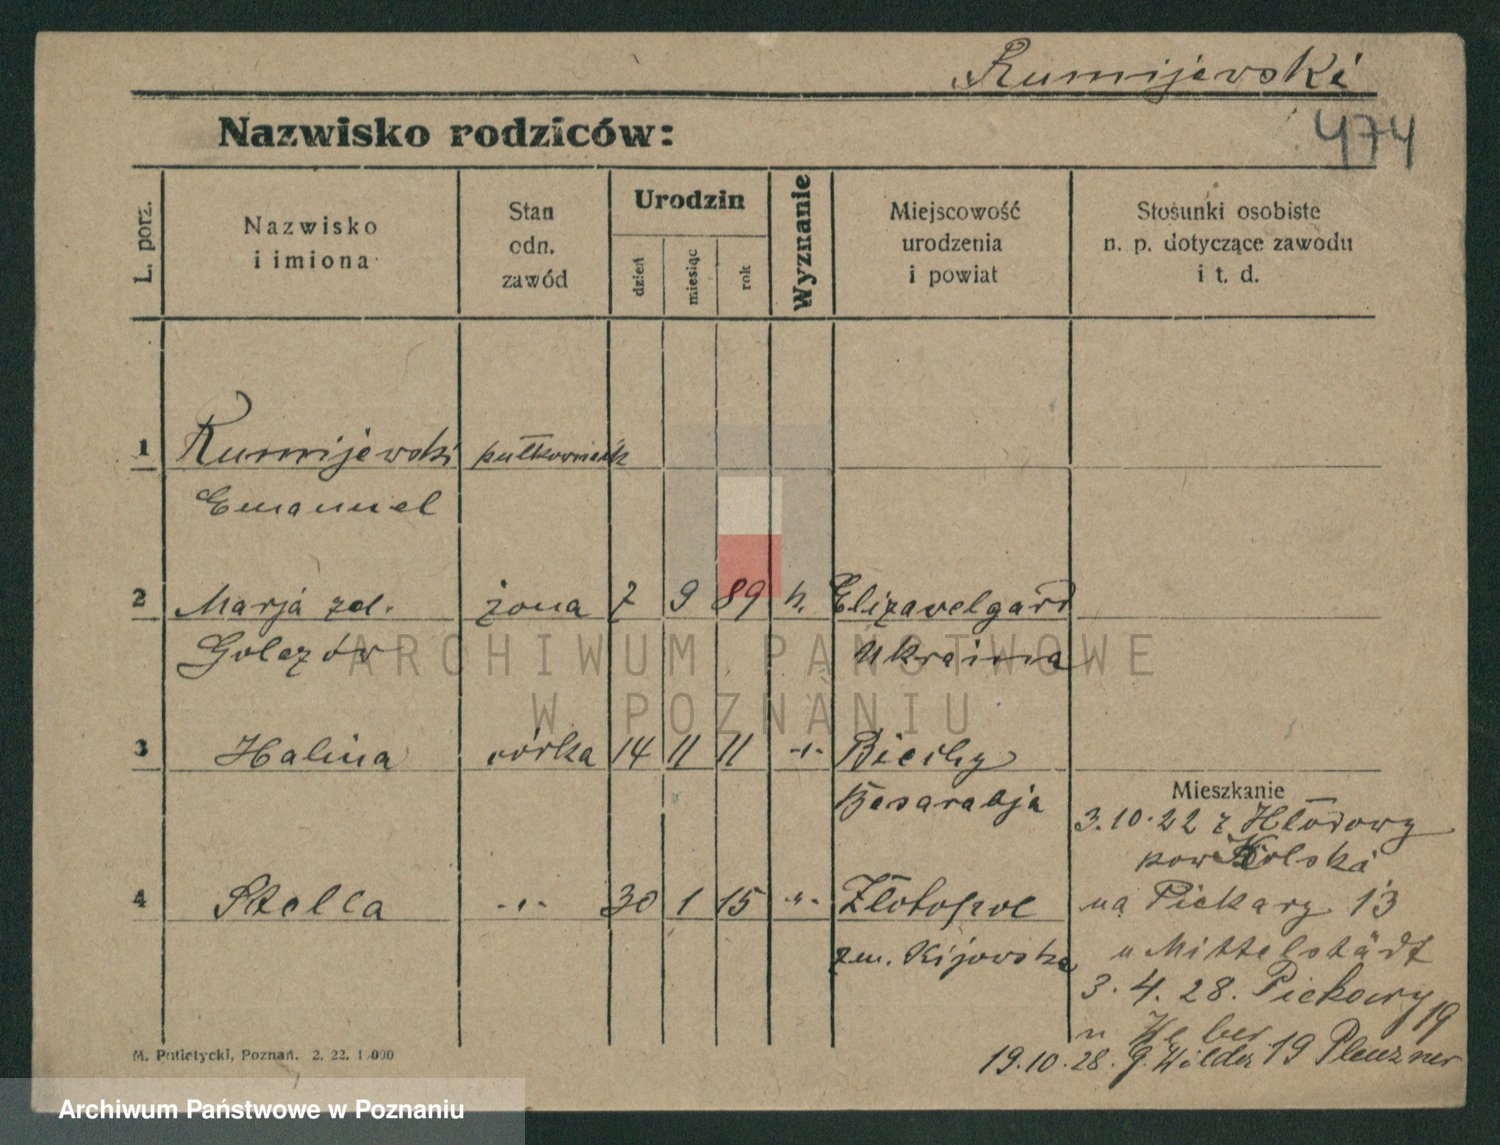 Rumijewski
474
Nazwisko rodziców:
L. porz.
Nazwisko
i imiona
Stan
odn.
zawód
Urodzin
dzień
miesiąc
rok
Wyznanie
Miejscowość
urodzenia
i powiat
Stosunki osobiste
n. p. dotyczące zawodu
i t. d.
1 Rumijewski pułkownik
Emanuel
2 Marja zd. żona 7 9 89 h. Elizawelgard
Golczów Ukraina
3 Halina córka 14 11 11 -"- Bielhy
Besarabja
4 Stella -"- 30 1 15 -"- Złotopol
zm. Kijowska
Mieszkanie
3.10.22 z Kłodowy
pow Kolski
na Piekary 13
u Mittelstädt
3. 4. 28. Piekary 19
u Heber
19.10.28. G. Wilda 19 Pleuzner
M. Putiatycki, Poznań. 2. 22. 1.000
ARCHIWUM PAŃSTWOWE
W POZNANIU
Archiwum Państwowe w Poznaniu